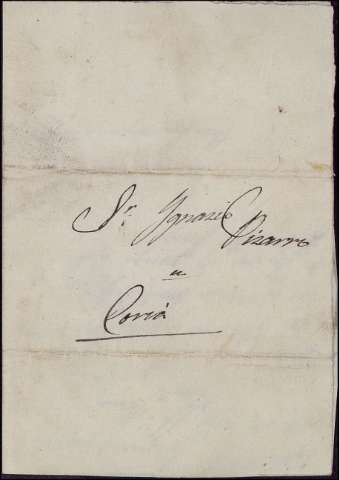 Sr. Ygnacio Pizarro
en
Coria